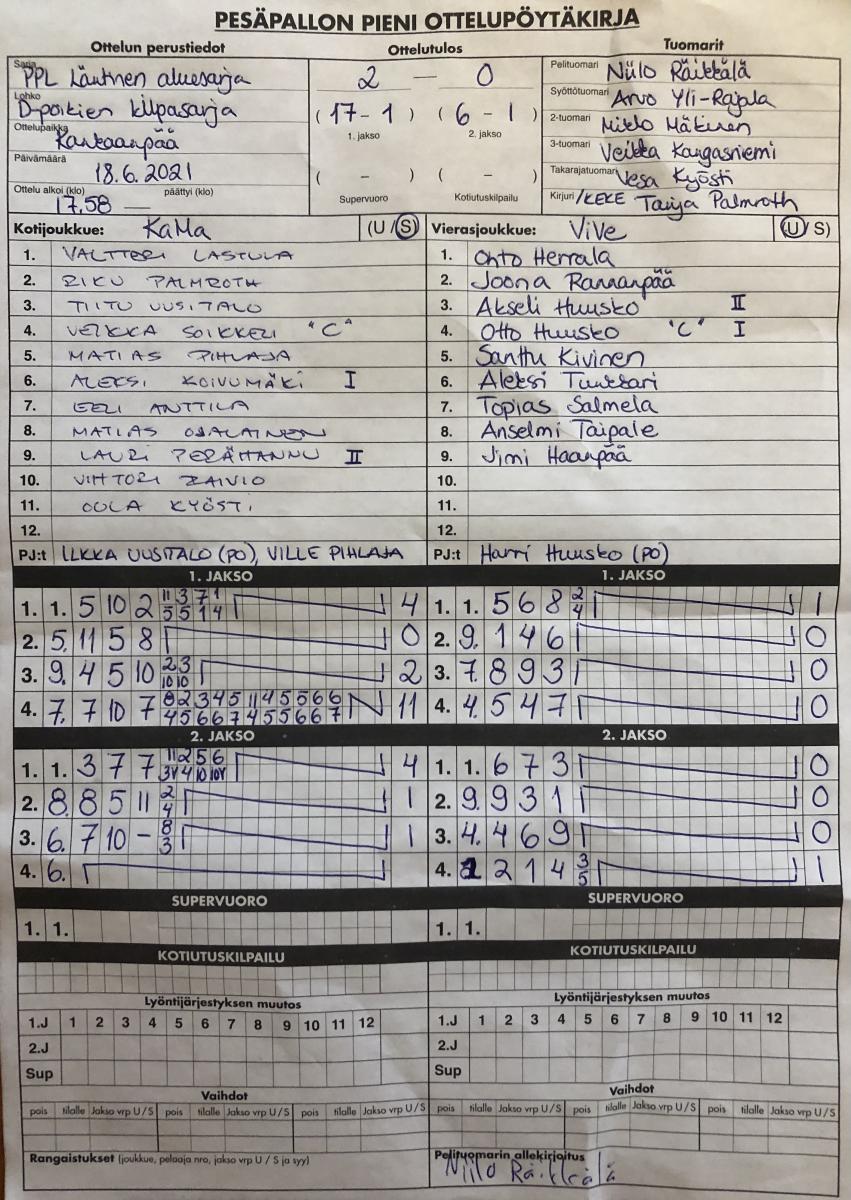 PESÄPALLON PIENI OTTELUPÖYTÄKIRJA
Ottelun perustiedot
Sarja PPL Läntinen aluesarja
Lohko D-poikien kilpasarja
Ottelupaikka Kankaanpää
Päivämäärä 18.6.2021
Ottelu alkoi (klo) 17.58 päättyi (klo) —
Ottelutulos
2 — 0
(17-1) (6-1)
1. jakso 2. jakso
( - ) ( - )
Supervuoro Kotiutuskilpailu
Tuomarit
Pelituomari Niilo Räikkälä
Syöttötuomari Arvo Yli-Rajala
2-tuomari Mikko Mäkinen
3-tuomari Veikka Kangasniemi
Takarajatuomari Vesa Kyösti
Kirjuri/KEKE Tarja Palmroth
Kotijoukkue: KaMa (U/S)
1. VALTTERI LASTULA
2. RIKU PALMROTH
3. TIITU UUSITALO
4. VEIKKA SOIKKELI "C"
5. MATIAS PIHLAJA
6. ALEKSI KOIVUMÄKI I
7. EELI ANTTILA
8. MATIAS OJALAINEN
9. LAURI PERÄHANNU II
10. VIHTORI RAIVIO
11. OULA KYÖSTI
12.
PJ:t ILKKA UUSITALO (PO), VILLE PIHLAJA
Vierasjoukkue: ViVe (U/S)
1. Ohto Herrala
2. Joona Rannanpää
3. Akseli Huusko II
4. Otto Huusko "C" I
5. Santtu Kivinen
6. Aleksi Tunkkari
7. Topias Salmela
8. Anselmi Taipale
9. Jimi Haanpää
10.
11.
12.
PJ:t Harri Huusko (PO)
1. JAKSO
1. 1. 5 10 2 11 3 7 1 4
5 5 1 4
2. 5. 11 5 8 0
3. 9. 4 5 10 2 3 2
10 10
4. 7. 7 10 7 8 2 3 4 5 11 4 5 5 6 6 11
4 5 6 6 7 4 5 5 6 6 7
1. JAKSO
1. 1. 5 6 8 2 1
4
2. 9. 1 4 6 0
3. 7. 8 9 3 0
4. 4. 5 4 7 0
2. JAKSO
1. 1. 3 7 7 11 2 5 6 4
3Y 4 10 10Y
2. 8. 8 5 11 2 1
4
3. 6. 7 10 - 8 1
3
4. 6.
2. JAKSO
1. 1. 6 7 3 0
2. 9. 9 3 1 0
3. 4. 4 6 9 0
4. 2 1 4 3 1
5
SUPERVUORO
1. 1.
KOTIUTUSKILPAILU
SUPERVUORO
1. 1.
KOTIUTUSKILPAILU
Lyöntijärjestyksen muutos
1.J 1 2 3 4 5 6 7 8 9 10 11 12
2.J
Sup
Lyöntijärjestyksen muutos
1.J 1 2 3 4 5 6 7 8 9 10 11 12
2.J
Sup
Vaihdot
pois tilalle Jakso vrp U/S pois tilalle Jakso vrp U/S pois tilalle Jakso vrp U/S
Vaihdot
pois tilalle Jakso vrp U/S pois tilalle Jakso vrp U/S pois tilalle Jakso vrp U/S
Rangaistukset (joukkue, pelaaja nro, jakso vrp U / S ja syy)
Pelituomarin allekirjoitus
Niilo Räikkälä